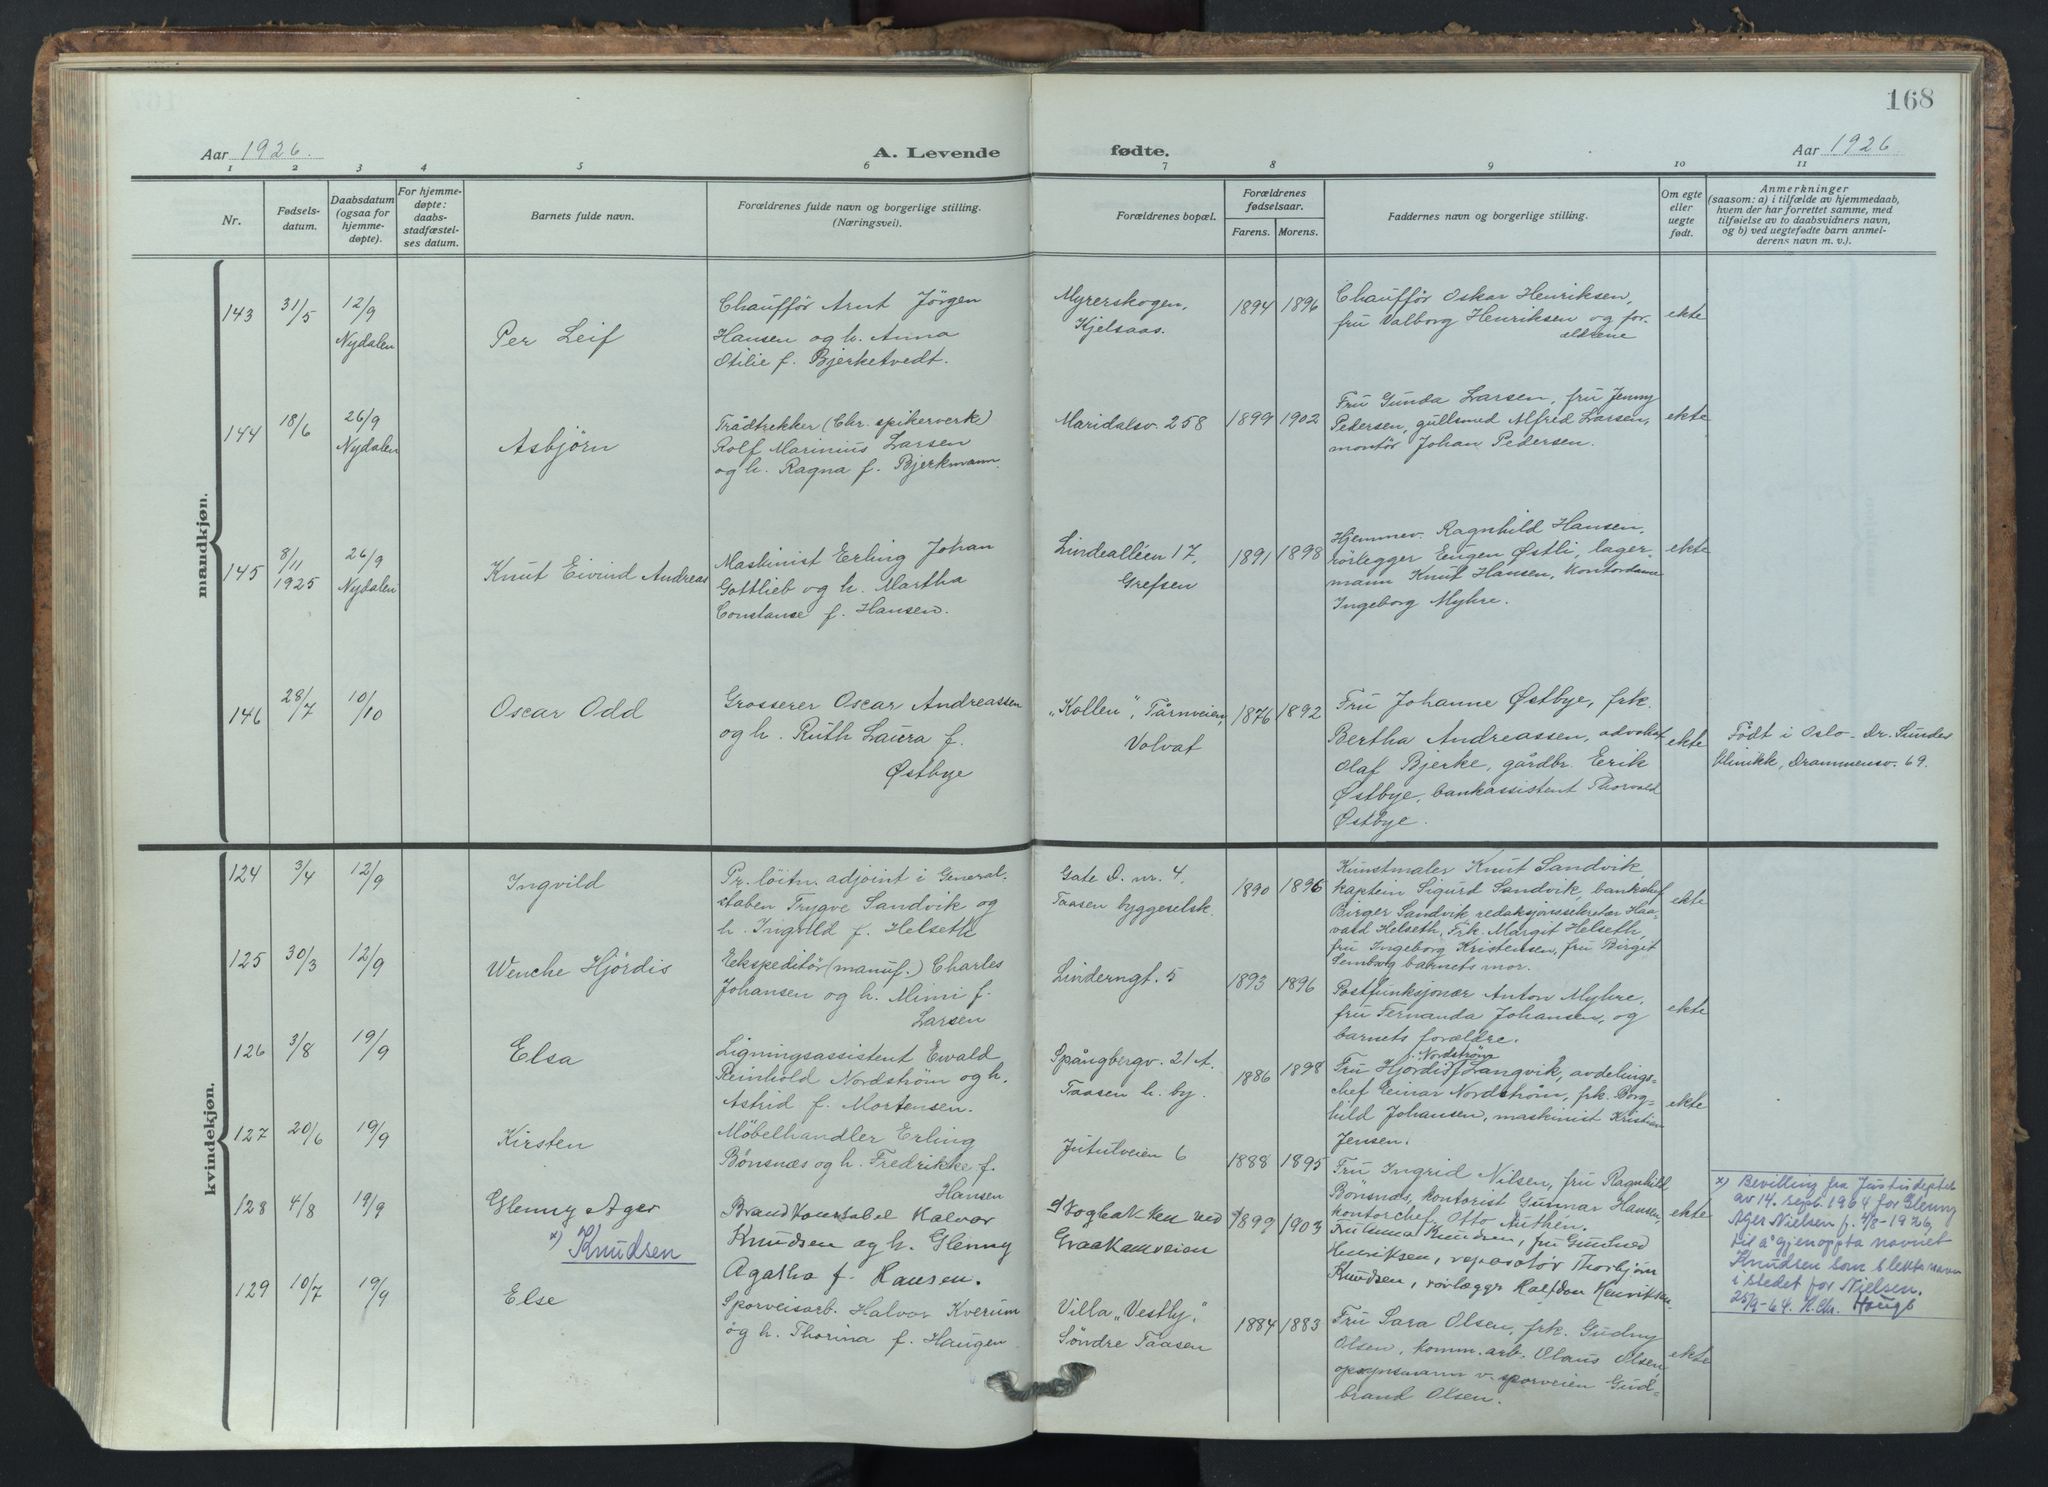 168
Aar 1926. A. Levende fødte. Aar 1926
1 2 3 4 5 6 7 8 9 10 11
Nr.
Fødsels-
datum.
Daabsdatum
(ogsaa for
hjemme-
døpte).
For hjemme-
døpte:
daabs-
stadfæstel-
ses datum.
Barnets fulde navn.
Forældrenes fulde navn og borgerlige stilling.
(Næringsvei).
Forældrenes bopæl.
Forældrenes
fødselsaar.
Farens. Morens.
Faddernes navn og borgerlige stilling.
Om egte
eller
uegte
født.
Anmerkninger
(saasom: a) i tilfælde av hjemmedaab,
hvem der har forrettet samme, med
tilføielse av to daabsvidners navn,
og b) ved uegtefødte barn anmel-
derens navn m. v.).
mandkjøn.
143 31/5 12/9
Nydalen
Per Leif
Chauffør Arnt Jörgen
Hansen og h. Anna
Otilie f. Bjerketvedt.
Myrerskogen,
Kjelsaas.
1894 1896
Chauffør Oskar Henriksen,
fru Valborg Henriksen og for-
ældrene
ekte
144 18/6 26/9
Nydalen
Asbjörn
Trådtrekker (Chr. spikerverk)
Rolf Marinius Larsen
og h. Ragna f. Bjerkmann.
Maridalsv. 258
1899 1902
Fru Gunda Larsen, fru Jenny
Pedersen, gullsmed Alfred Larsen,
montör Johan Pedersen.
ekte
145 8/11
1925
26/9
Nydalen
Knut Eivind Andreas
Maskinist Erling Johan
Gottlieb og h. Martha
Constanse f. Hansen.
Lindealléen 17,
Grefsen
1891 1898
Hjemmev. Ragnhild Hansen,
rörlegger Eugen Østli, lager-
mann Knut Hansen, kontordame
Ingeborg Myhre.
ekte
146 28/7 10/10
Oscar Odd
Grosserer Oscar Andreassen
og h. Ruth Laura f.
Østbye
"Kollen", Tårnveien,
Volvat
1876 1892
Fru Johanne Østbye, frk.
Bertha Andreassen, advokat
Olaf Bjerke, gårdbr. Erik
Østbye, bankassistent Thorvald
Østbye.
ekte
Født i Oslo - Dr. Sundes
klinikk, Drammensv. 69.
kvindekjøn.
124 3/4 12/9
Ingvild
Pr. löitn. adjoint i General-
staben Trygve Sandvik og
h. Ingvild f. Helseth
Gate D. nr. 4,
Taasen byggeselsk.
1890 1896
Kunstmaler Knut Sandvik,
kaptein Sigurd Sandvik, banksjef
Birger Sandvik redaksjonssekretær Haa-
vald Helseth, Frk. Margit Helseth,
fru Ingeborg Kristensen, fru Birgit
barnets mor.
ekte
125 30/3 12/9
Wenche Hjördis
Ekspeditör (manuf.) Charles
Johansen og h. Mimi f.
Larsen
Linderngt. 5
1893 1896
Postfunksjonær Anton Myhre,
fru Fernanda Johansen, og
barnets forældre.
ekte
126 3/8 19/9
Elsa
Ligningsassistent Ewald
Reinhold Nordstrøm og h.
Astrid f. Mortensen.
Spångbergv. 21 A.
Taasen h. by.
1886 1898
Nordstrøm
Fru Hjördis Langvik, avdelings-
chef Einar Nordstrøm, frk. Borg-
hild Johansen, maskinist Kristian
Jensen.
ekte
127 20/6 19/9
Kirsten
Møbelhandler Erling
Bønsnæs og h. Fredrikke f.
Hansen
Jutulveien 6
1888 1895
Fru Ingrid Nilsen, fru Ragnhild
Bönsnæs, kontorist Gunnar Hansen,
kontorchef Otto Authen.
ekte
128 4/8 19/9
Glenny Ager
x) Knudsen
Brandkonstabel Halvor
Knudsen og h. Glenny
Agatha f. Hansen.
Skogbakken ved
Graakamveien
1899 1903
Fru Anna Knudsen, fru Gunhild
Henriksen, reparatør Thorbjørn
Knudsen, rørlægger Halfdan Henriksen.
x) Bevilling fra Justisdeptet
av 14. sept. 1964 for Glenny
Ager Nielsen f. 4/8-1926,
til å gjenoppta navnet
Knudsen som slektsnavn
i stedet for Nielsen.
25/9-64. H. Chr. Hougs
129 10/7 19/9
Else
Sporveisarb. Halvor Kverum
og h. Thorina f. Haugen
Villa "Vestly",
Söndre Taasen
1884 1883
Fru Sara Olsen, frk. Gudny
Olsen, komm.arb. Claus Olsen,
opsynsmann v. sporveien Gud-
brand Olsen.
ekte